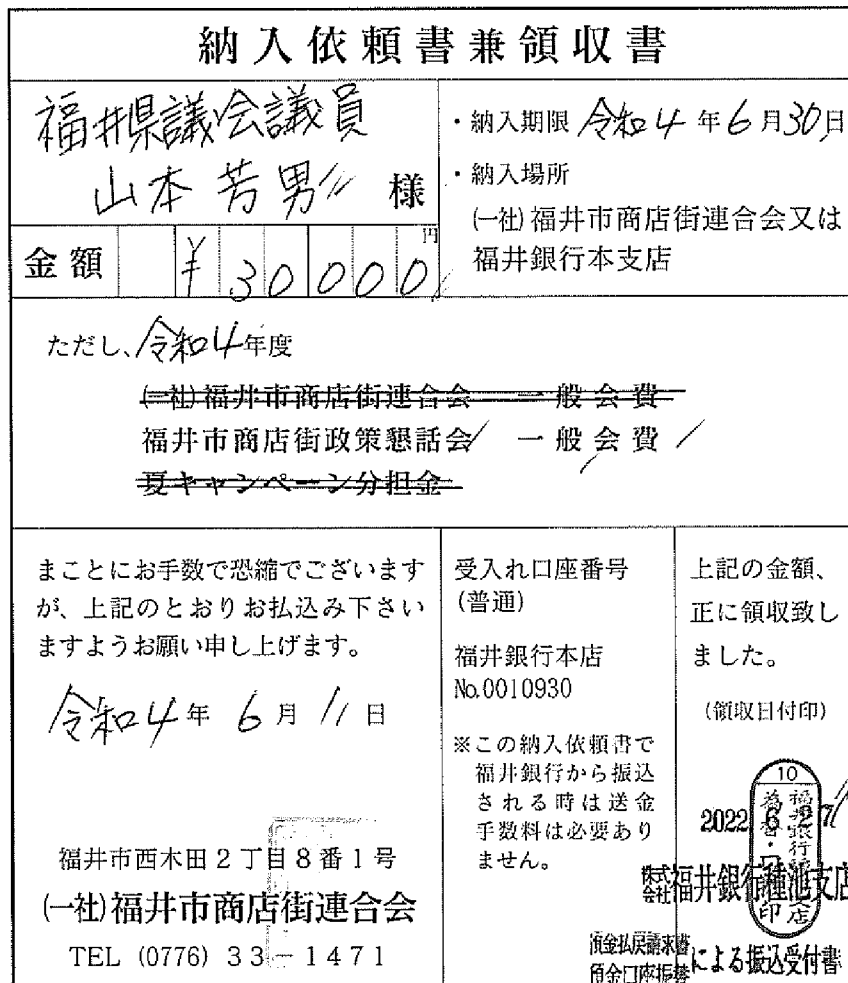 納入依頼書兼領収書
福井県議会議員
山本芳男 様
・納入期限 令和4年6月30日
・納入場所
(一社)福井市商店街連合会又は
福井銀行本支店
金額 ¥30000 円
ただし、令和4年度
(一社)福井市商店街連合会 一般会費
福井市商店街政策懇話会 一般会費
夏キャンペーン分担金
まことにお手数で恐縮でございます
が、上記のとおりお払込み下さい
ますようお願い申し上げます。
令和4年6月11日
福井市西木田2丁目8番1号
(一社)福井市商店街連合会
TEL (0776) 33-1471
受入れ口座番号
(普通)
福井銀行本店
No.0010930
※この納入依頼書で
福井銀行から振込
される時は送金
手数料は必要あり
ません。
上記の金額、
正に領収致し
ました。
(領収日付印)
10
2022 6 27
株式会社福井銀行種池支店
預金払戻請求書
預金口座振替
による振込受付書